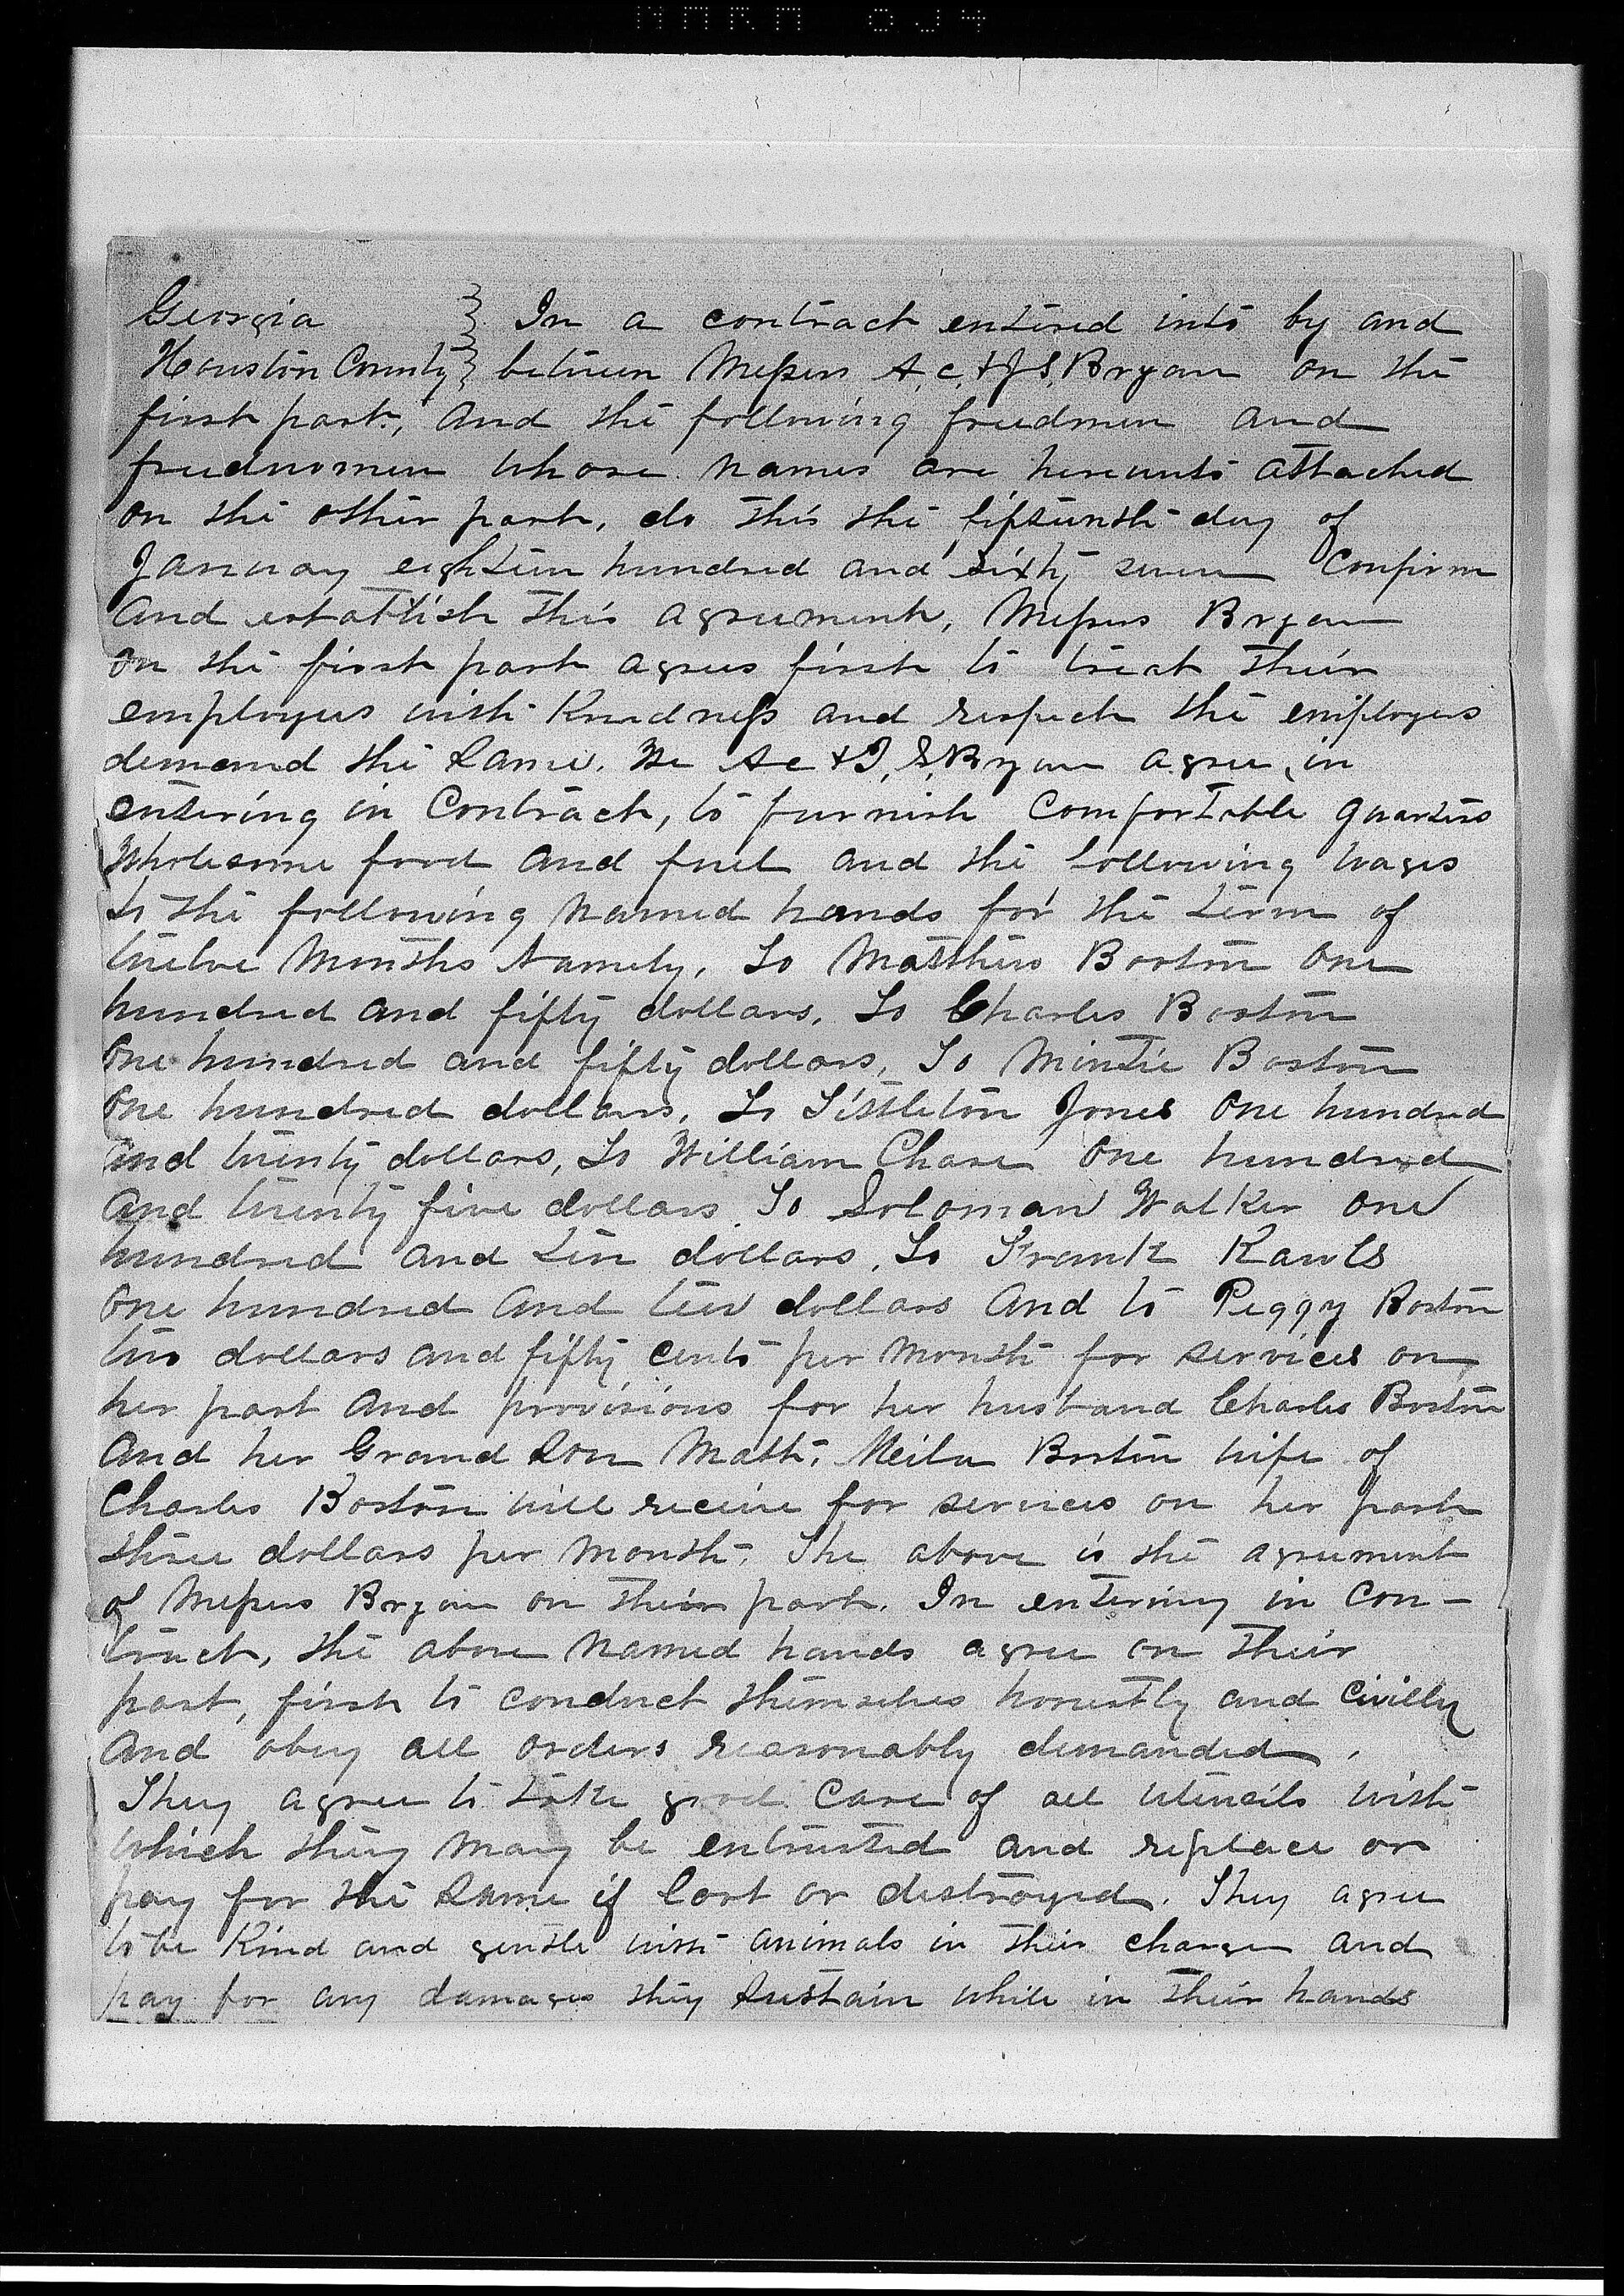 Georgia } In a contract entered into by and
Houston County } between Messrs A. C. & J. S. Bryan on the
first part, and the following freedmen and
freedwomen whose names are hereunto attached
on the other part, do this the fifteenth day of
January eighteen hundred and sixty seven Confirm
and establish this agreement, Messrs Bryan
on the first part agrees first to treat their
employees with Kindness and respect the employers
demand the Same. We A c & J. S. Bryan agree, in
entering in Contract, to furnish Comfortable quarters
Wholesome food and fuel and the following wages
to the following named hands for the term of
twelve Months Namely, To Matthew Boston One
hundred and fifty dollars, To Charles Boston
One hundred and fifty dollars, To Mintie Boston
One hundred dollars, To Littleton Jones One hundred
and twenty dollars, To William Chase One hundred
and twenty five dollars To Soloman Walker one
hundred and ten dollars, To Frank Rawls
One hundred and ten dollars And to Peggy Boston
two dollars and fifty cents per Month for services on
her part And provisions for her husband Charles Boston
And her Grand Son Math. Boston wife of
Charles Boston will receive for services on her part
three dollars per Month. The above is the agreement
of Messrs Bryan on their part. In entering in Con-
tract, the above Named hands agree on their
part, first to conduct themselves honestly and civilly
And obey all orders reasonably demanded.
They agree to take good Care of all utensils with
which they may be entrusted and replace or
pay for the Same if lost or destroyed. They agree
to be Kind and gentle with animals in their charge and
pay for any damages they Sustain while in their hands